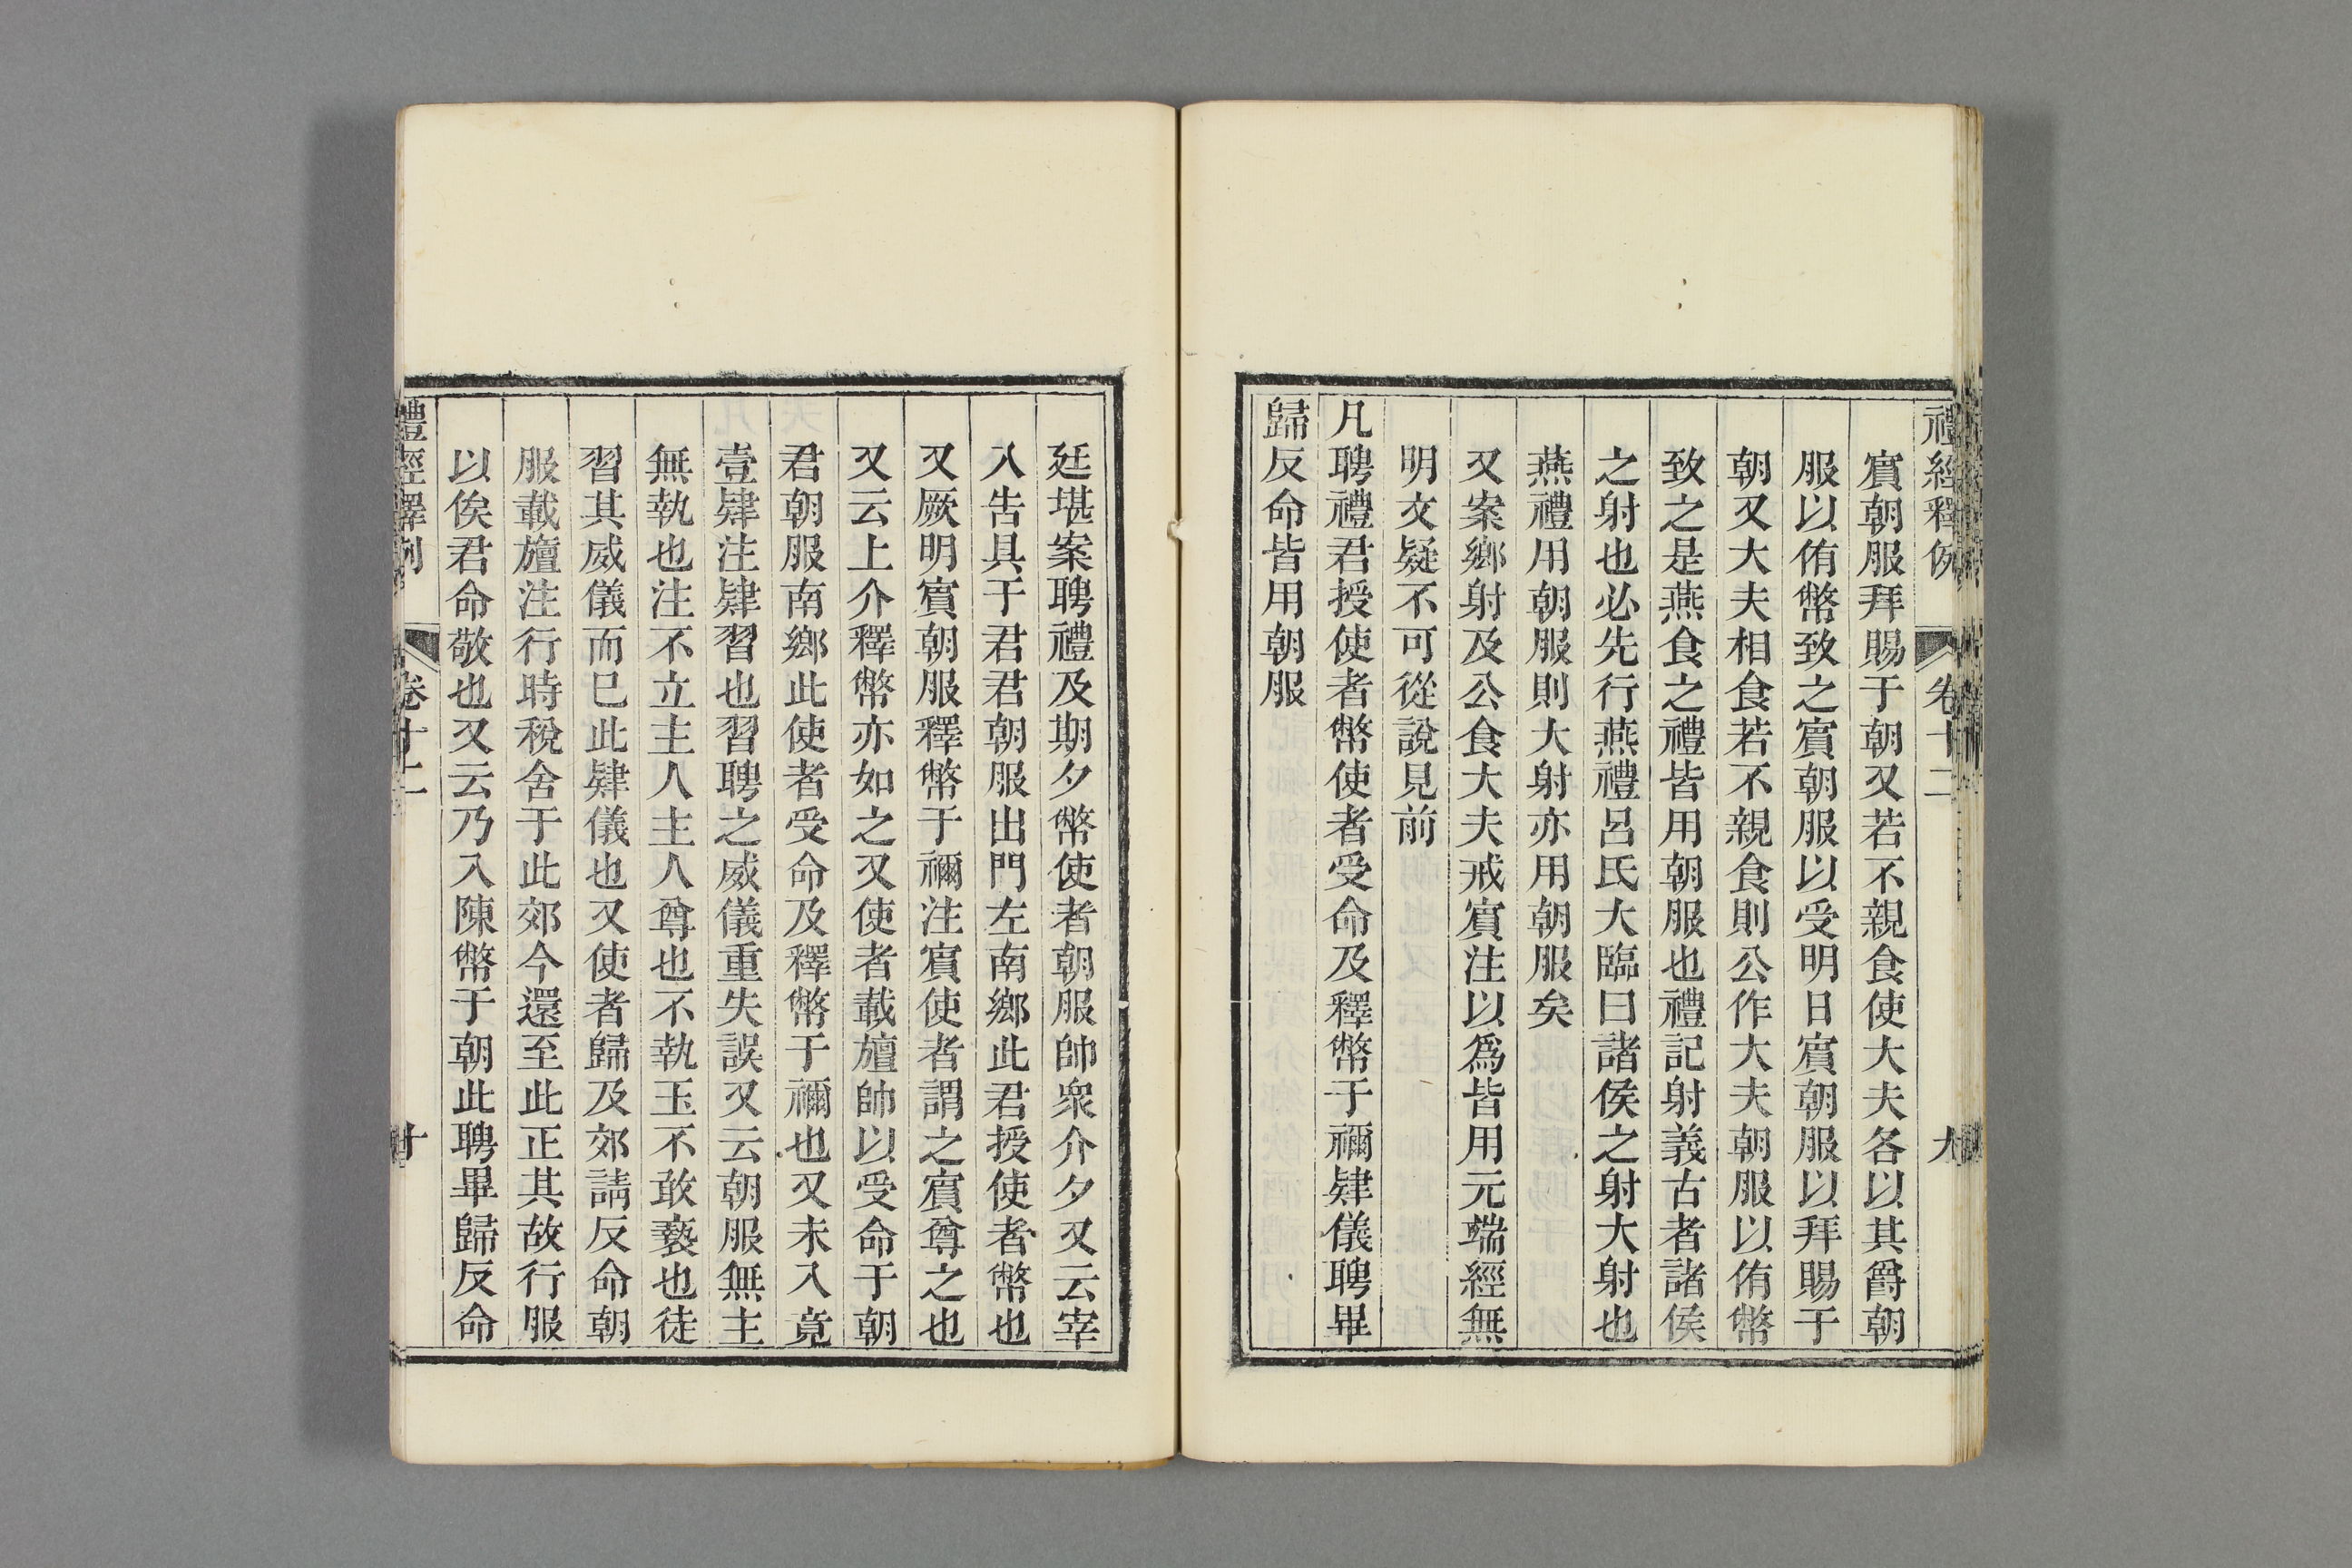 禮經釋例 卷十二
賓朝服拜賜于朝又若不親食使大夫各以其爵朝
服以侑幣致之賓朝服以受明日賓朝服以拜賜于
朝又大夫相食若不親食則公作大夫朝服以侑幣
致之是燕食之禮皆用朝服也禮記射義古者諸侯
之射也必先行燕禮呂氏大臨曰諸侯之射大射也
燕禮用朝服則大射亦用朝服矣
又案鄉射及公食大夫戒賓注以爲皆用元端經無
明文疑不可從說見前
凡聘禮君授使者幣使者受命及釋幣于禰肄儀聘畢
歸反命皆用朝服
廷堪案聘禮及期夕幣使者朝服帥衆介夕又云宰
入告具于君君朝服出門左南鄉此君授使者幣也
又厥明賓朝服釋幣于禰注賓使者謂之賓尊之也
又云上介釋幣亦如之又使者載旜帥以受命于朝
君朝服南鄉此使者受命及釋幣于禰也又未入竟
壹肄注肄習也習聘之威儀重失誤又云朝服無主
無執也注不立主人主人尊也不執玉不敢褻也徒
習其威儀而已此肄儀也又使者歸及郊請反命朝
服載旜注行時稅舍于此郊今還至此正其故行服
以俟君命敬也又云乃入陳幣于朝此聘畢歸反命
禮經釋例 卷十二